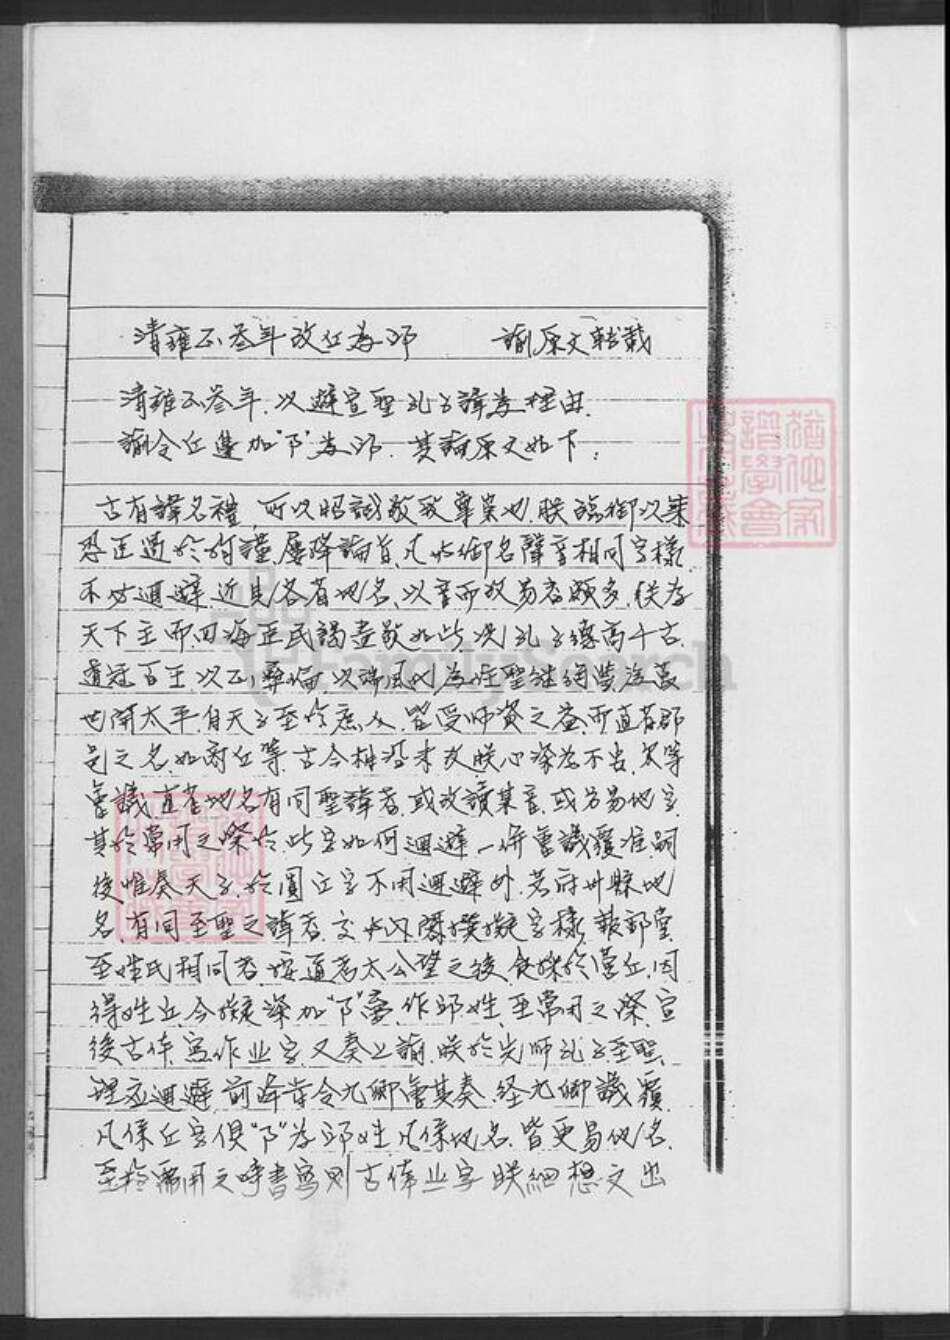 清雍正叁年改丘為邱 諭原文轉載
清雍正叁年,以避宣聖孔子諱為理由,
諭令丘邊加"阝"為邱,其諭原文如下:
古有諱名禮,所以昭誠敬致尊崇也,朕臨御以來
恐至過於拘謹,屢降諭旨,凡如御名聲音相同字樣
不必迴避,近見各省地名,以音而改易者頗多,朕為
天下主而四海臣民謁盡敬如此,況孔子德高千古
道冠百王,以正彝倫,以端風化,為往聖繼絕學為萬
世開太平,自天子至於庶人,皆受師資之益,而直省郡
邑之名,如商丘等,古今相沿未改,朕心深為不安,尔等
會議直省地名有同聖諱者,或改讀某音,或另易他字
其於常用之際於此字如何迴避,一併會議覆准,嗣
後惟奏天子於圜丘字不用迴避外,若府州縣地
名,有同至聖之諱者,交內閣撰擬字樣,報部堂
至姓氏相同者,按通考太公望之後,食採於營丘,因
得姓丘,今擬添加"阝"旁,作邱姓,至常用之際,宜
從古体,寫作业字,又奏上諭,朕於先師孔子至聖,
理应迴避,前降旨令九卿會其奏,经九卿議覆,
凡係丘字俱"阝"為邱姓,凡係地名,皆更易他名,
至於常用之時書寫則古体业字,朕細想文出
猶他家譜學會